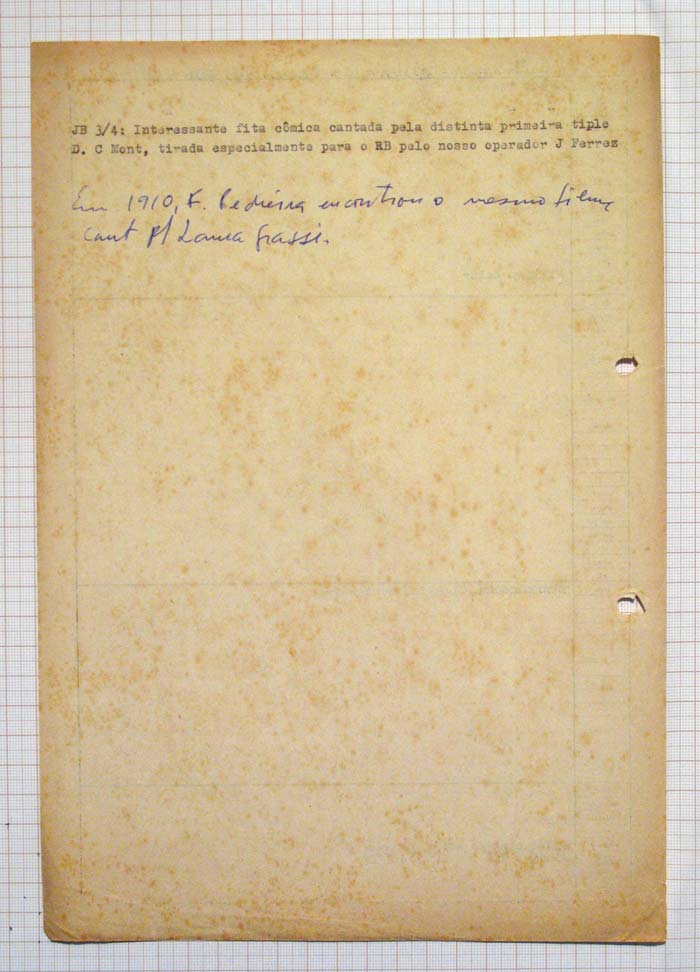 JB 3/4: Interessante fita cômica cantada pela distinta primeira tiple
D. C Mont, tirada especialmente para o RB pelo nosso operador J Ferrez
Em 1910, F. encontrou o mesmo filme
cant p/ Laura Grassi.